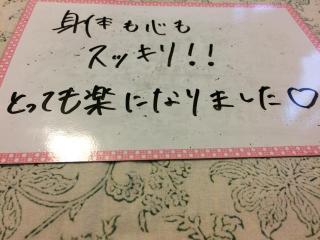 身体も心も
スッキリ!!
とっても楽になりました♡